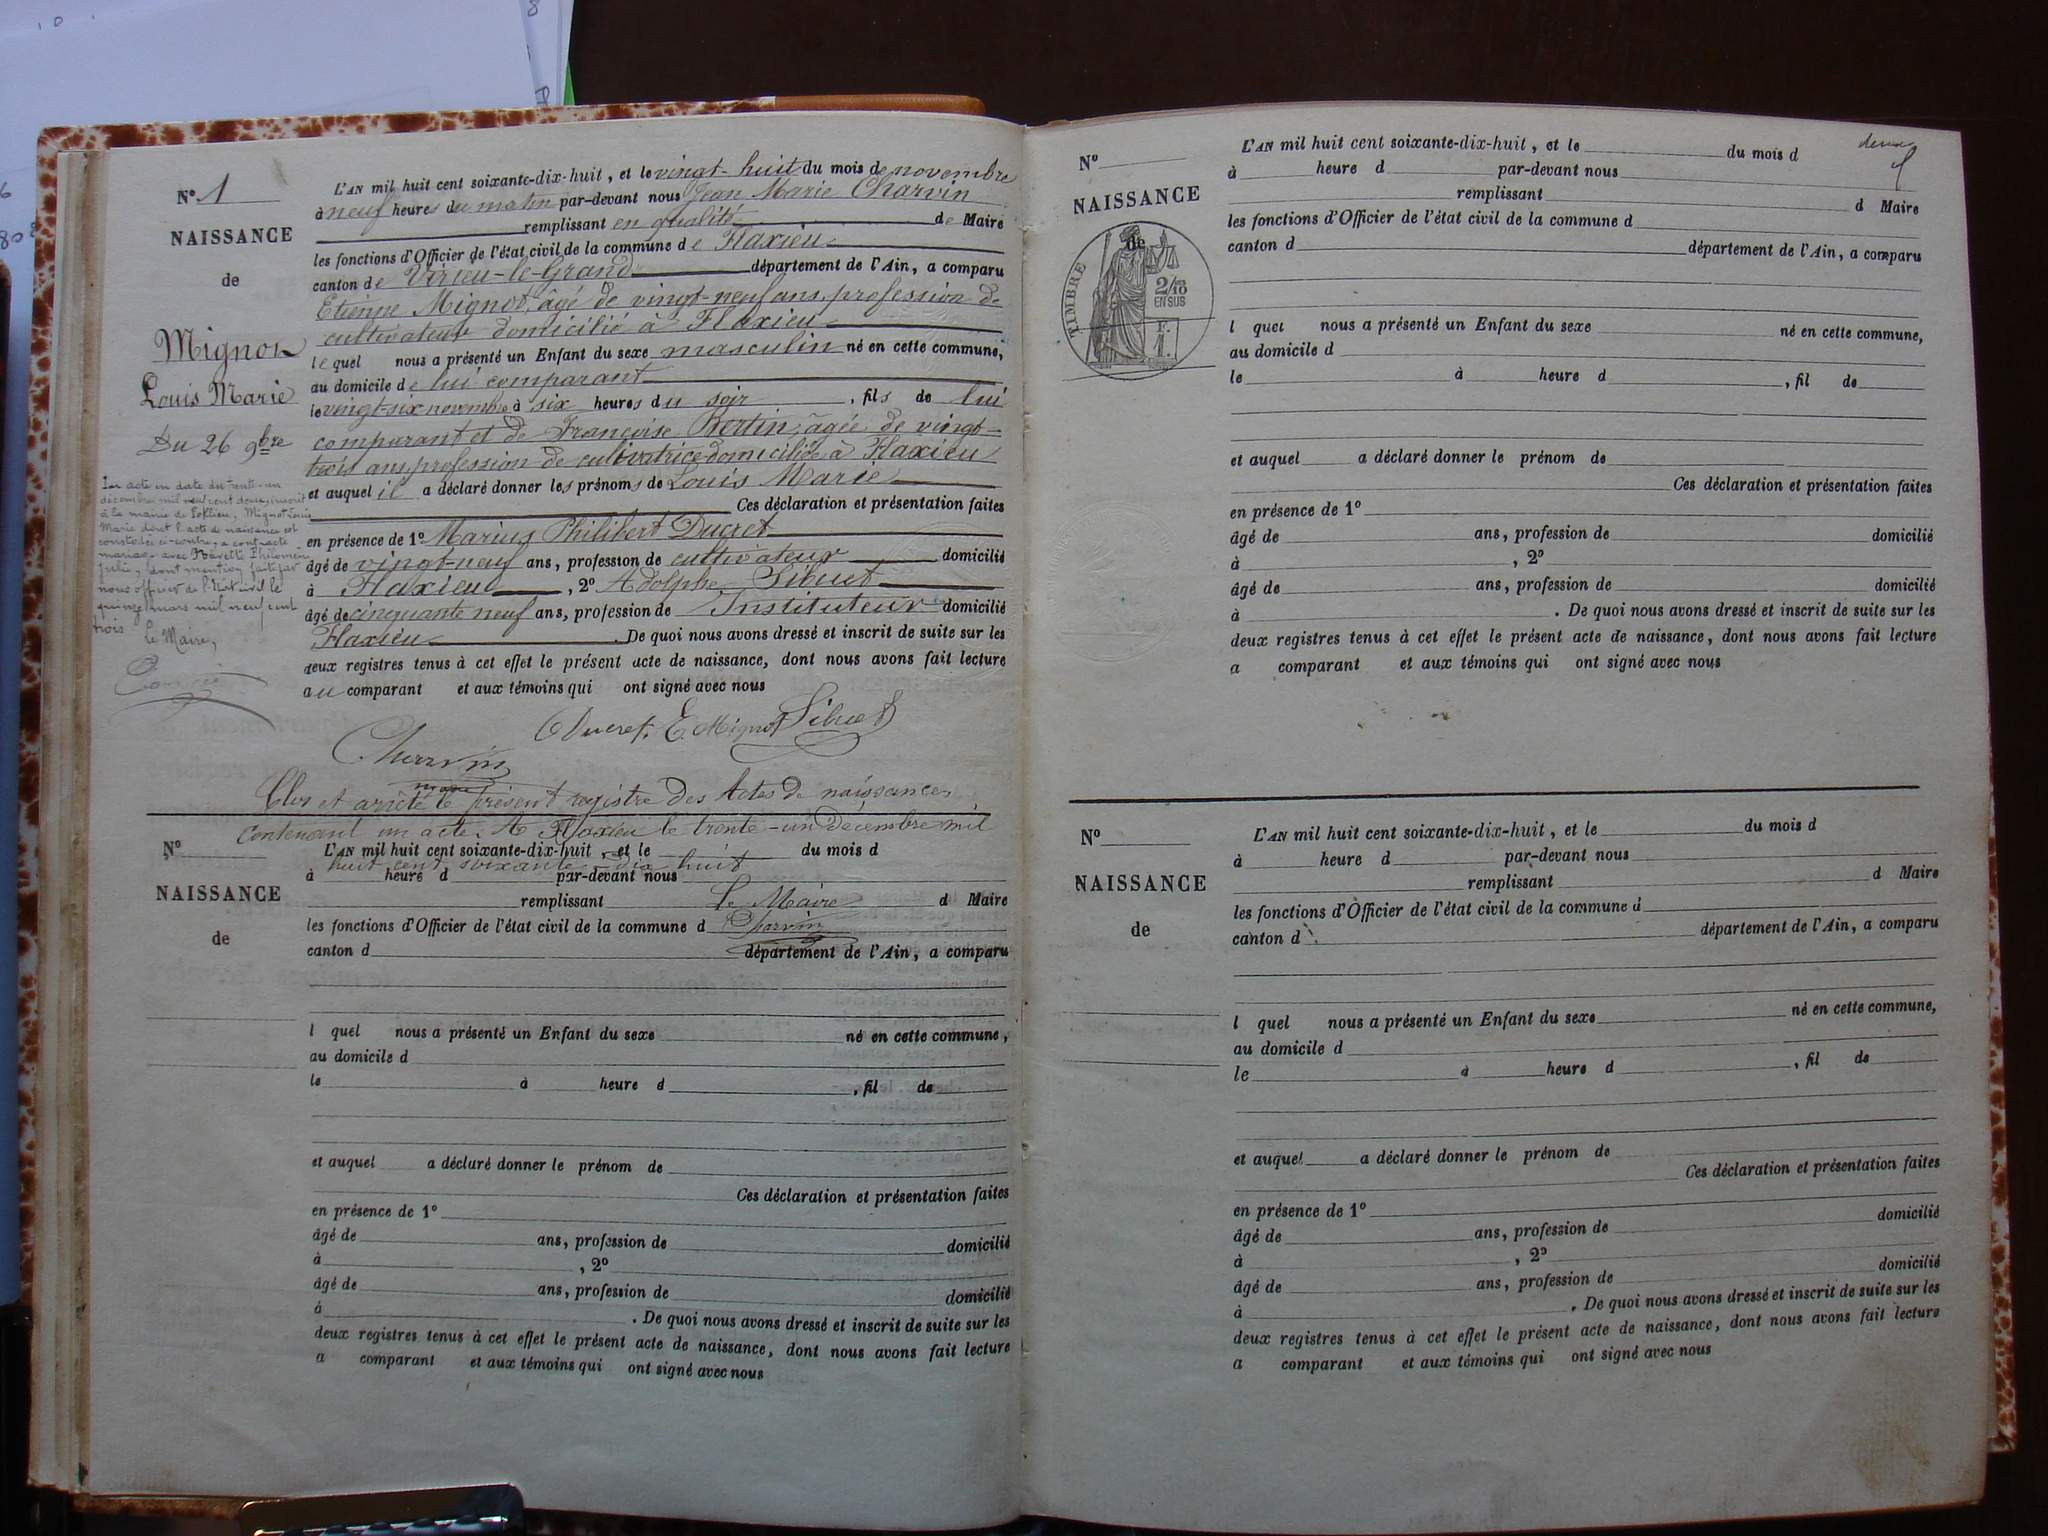 N° 1
NAISSANCE
de
Mignot
Louis Marie
Du 26 9bre
Par acte en date du trente-un
décembre mil neuf cent deux, inscrit
à la mairie de, Mignot Louis
Marie dont l'acte de naissance est
constaté ci-contre, a contracté
mariage avec Philomène
Julie, dont mention faite par
nous officier de l'état civil le
quinze mars mil neuf cent
trois Le Maire,
L'AN mil huit cent soixante-dix-huit, et le vingt-huit du mois de novembre
à neuf heures du matin par-devant nous Jean Marie Charvin
remplissant en qualité de Maire
les fonctions d'Officier de l'état civil de la commune de Flaxieu
canton de Virieu-le-Grand département de l'Ain, a comparu
Etienne Mignot, âgé de vingt-neuf ans, profession de
cultivateur domicilié à Flaxieu
lequel nous a présenté un Enfant du sexe masculin né en cette commune,
au domicile de lui comparant
le vingt-six novembre à six heures du soir, fils de lui
comparant et de Françoise Bertin, âgée de vingt-
trois ans, profession de cultivatrice domiciliée à Flaxieu
et auquel il a déclaré donner les prénoms de Louis Marie
Ces déclaration et présentation faites
en présence de 1° Marius Philibert Ducret
âgé de vingt-neuf ans, profession de cultivateur domicilié
à Flaxieu, 2° Adolphe Sibuet
âgé de cinquante neuf ans, profession de Instituteur domicilié
Flaxieu. De quoi nous avons dressé et inscrit de suite sur les
deux registres tenus à cet effet le présent acte de naissance, dont nous avons fait lecture
au comparant et aux témoins qui ont signé avec nous
Ducret. E. Mignot Sibuet
Charvin
maire
Clos et arrêté le présent registre des Actes de naissances
contenant un acte. A Flaxieu le trente-un décembre mil
huit cent soixante-dix-huit
Le Maire
Charvin
N°
NAISSANCE
de
L'AN mil huit cent soixante-dix-huit, et le du mois d
à heure d par-devant nous
remplissant d Maire
les fonctions d'Officier de l'état civil de la commune d
canton d département de l'Ain, a comparu
l quel nous a présenté un Enfant du sexe né en cette commune,
au domicile d
le à heure d, fil de
et auquel a déclaré donner le prénom de
Ces déclaration et présentation faites
en présence de 1°
âgé de ans, profession de domicilié
à, 2°
âgé de ans, profession de domicilié
à. De quoi nous avons dressé et inscrit de suite sur les
deux registres tenus à cet effet le présent acte de naissance, dont nous avons fait lecture
a comparant et aux témoins qui ont signé avec nous
N°
NAISSANCE
de
TIMBRE
2/10
EN SUS
F.
1.
L'AN mil huit cent soixante-dix-huit, et le du mois d
à heure d par-devant nous
remplissant d Maire
les fonctions d'Officier de l'état civil de la commune d
canton d département de l'Ain, a comparu
l quel nous a présenté un Enfant du sexe né en cette commune,
au domicile d
le à heure d, fil de
et auquel a déclaré donner le prénom de
Ces déclaration et présentation faites
en présence de 1°
âgé de ans, profession de domicilié
à, 2°
âgé de ans, profession de domicilié
à. De quoi nous avons dressé et inscrit de suite sur les
deux registres tenus à cet effet le présent acte de naissance, dont nous avons fait lecture
a comparant et aux témoins qui ont signé avec nous
N°
NAISSANCE
de
L'AN mil huit cent soixante-dix-huit, et le du mois d
à heure d par-devant nous
remplissant d Maire
les fonctions d'Officier de l'état civil de la commune d
canton d département de l'Ain, a comparu
l quel nous a présenté un Enfant du sexe né en cette commune,
au domicile d
le à heure d, fil de
et auquel a déclaré donner le prénom de
Ces déclaration et présentation faites
en présence de 1°
âgé de ans, profession de domicilié
à, 2°
âgé de ans, profession de domicilié
à. De quoi nous avons dressé et inscrit de suite sur les
deux registres tenus à cet effet le présent acte de naissance, dont nous avons fait lecture
a comparant et aux témoins qui ont signé avec nous